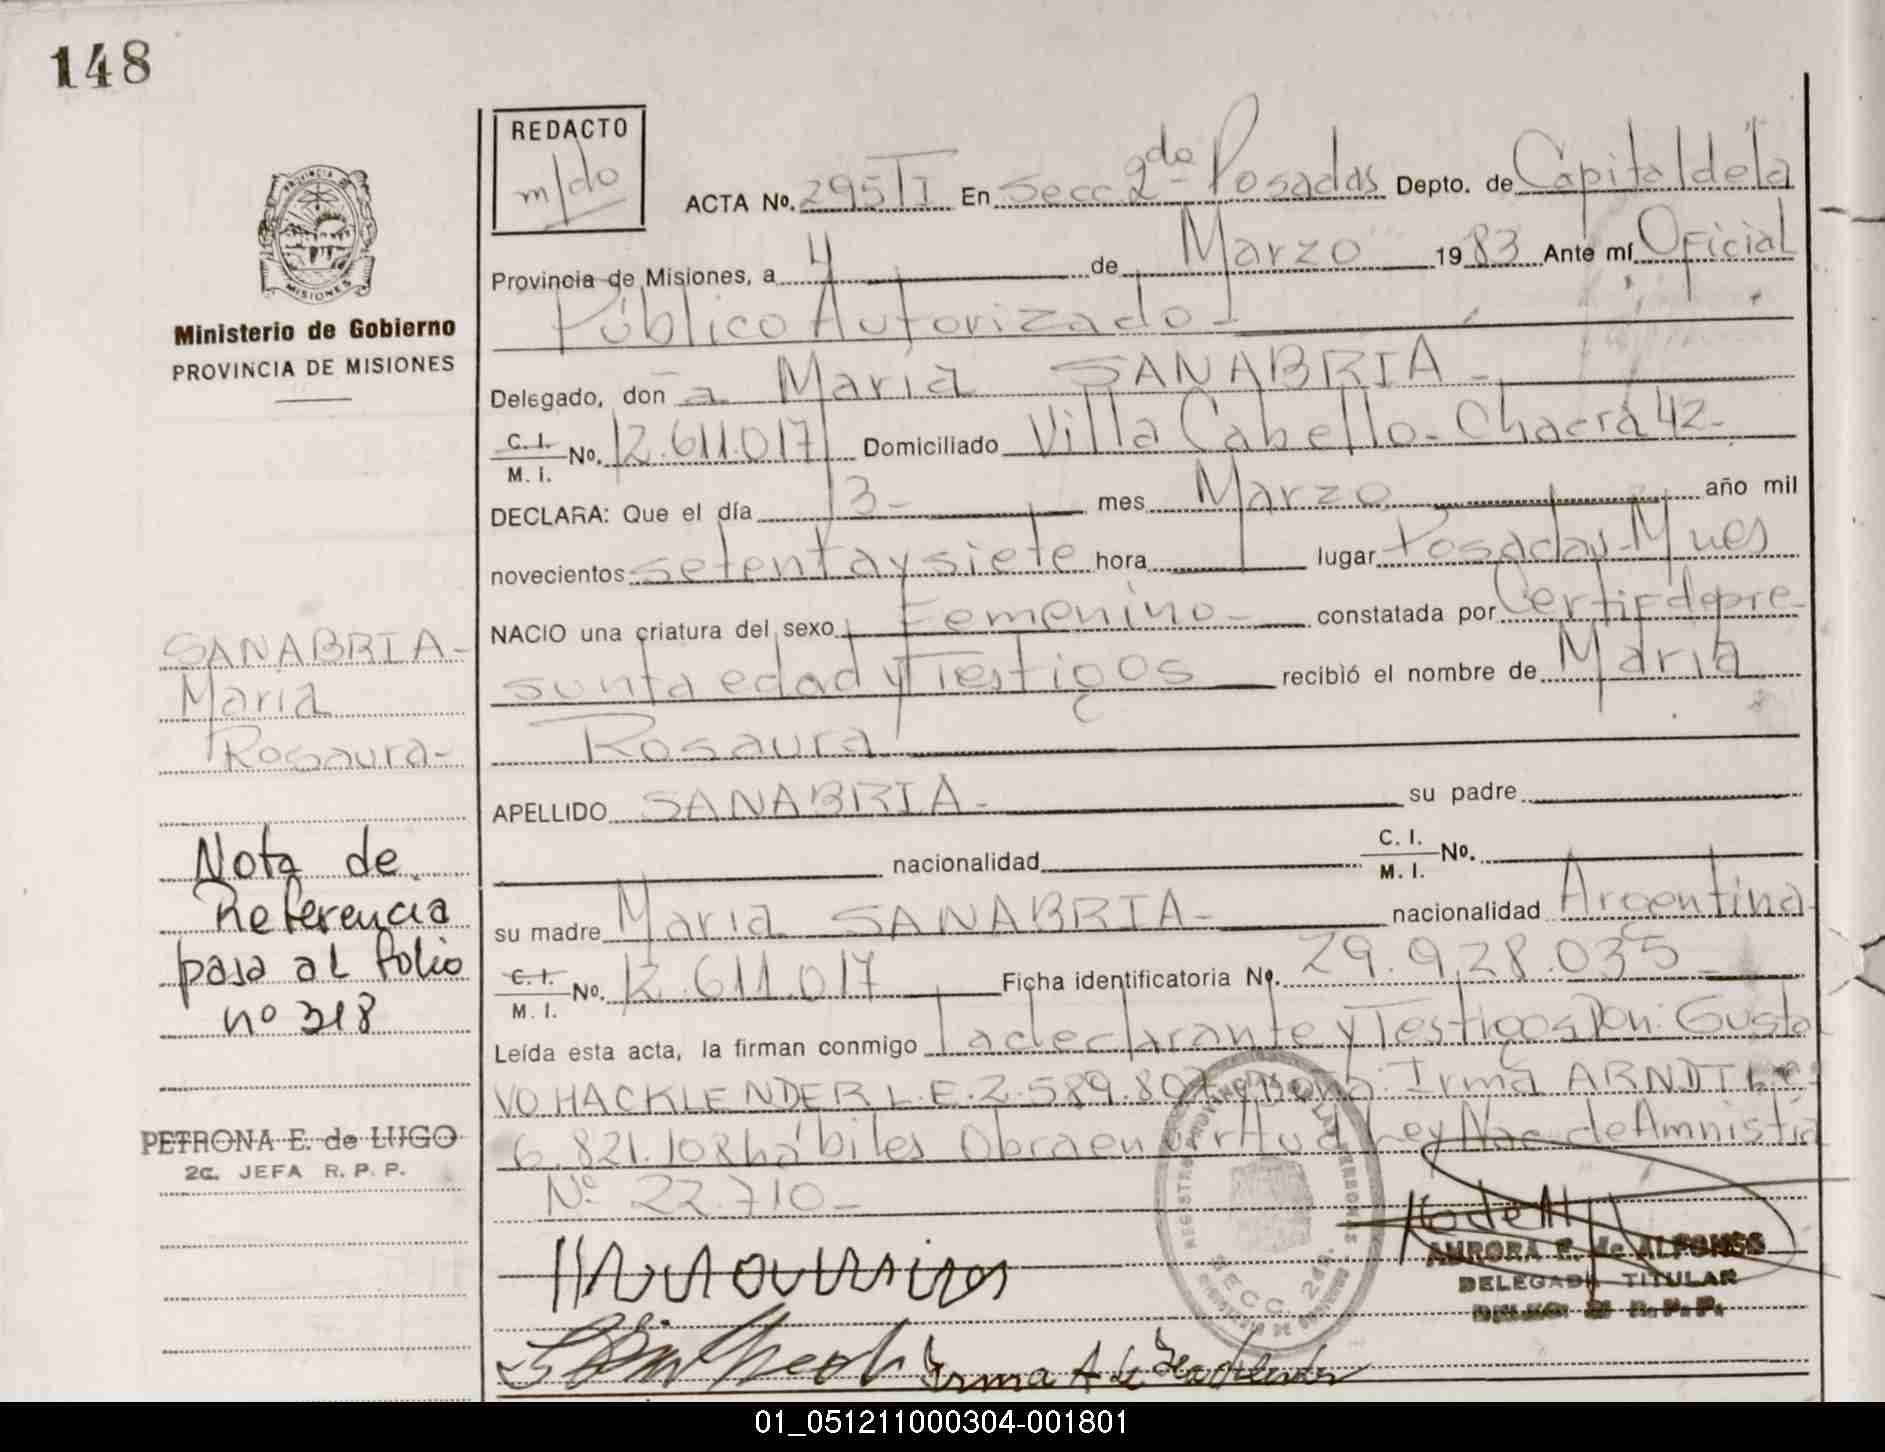 148
REDACTO
m/do
ACTA No. 295 TI En Secc. 2da Posadas Depto. de Capital de la
Provincia de Misiones, a 4 de Marzo 1983 Ante mí Oficial
Público Autorizado -
Delegado, don a María SANABRIA -
C. I. M. I. No. 12.611.017 Domiciliado Villa Cabello - Chacra 42 -
DECLARA: Que el día 13 - mes Marzo año mil
novecientos setenta y siete hora lugar Posadas - Mnes
NACIO una criatura del sexo Femenino - constatada por Certif de pre
sunta edad y Testigos recibió el nombre de María
Rosaura
APELLIDO SANABRIA - su padre
nacionalidad C. I. M. I. No.
su madre María SANABRIA - nacionalidad Argentina -
C. I. M. I. No. 12.611.017 Ficha identificatoria No. 29.928.035 -
Leída esta acta, la firman conmigo la declarante y Testigos Don: Gusta
VO HACKLENDER L.E. 2.589.807 y Doña: Irma ARNDT
6.821.108 hábiles Obra en virtud Ley Nac. de Amnistía
Nº 22.710 -
Irma A de Hacklender
AURORA E. de ALFONSO
DELEGADA TITULAR
SECC. 2da.
MISIONES
Ministerio de Gobierno
PROVINCIA DE MISIONES
SANABRIA -
María
Rosaura -
Nota de
Referencia
pasa al folio
nº 318
PETRONA E. de LUGO
2a. JEFA R. P. P.
01_051211000304-001801